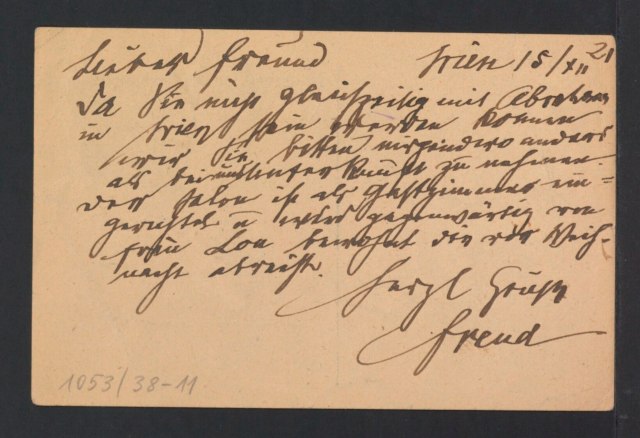 Lieber Freund Wien 15/XII 21
Da Sie nicht gleichzeitig mit Abraham
in Wien sein werden können
wir Sie bitten nirgendwo anders
als bei uns Unterkunft zu nehmen.
Der Salon ist als Gastzimmer ein=
gerichtet u wird gegenwärtig von
Frau Lou bewohnt die vor Weih-
nacht abreist.
Herzl Gruß
Freud
1053/38-11